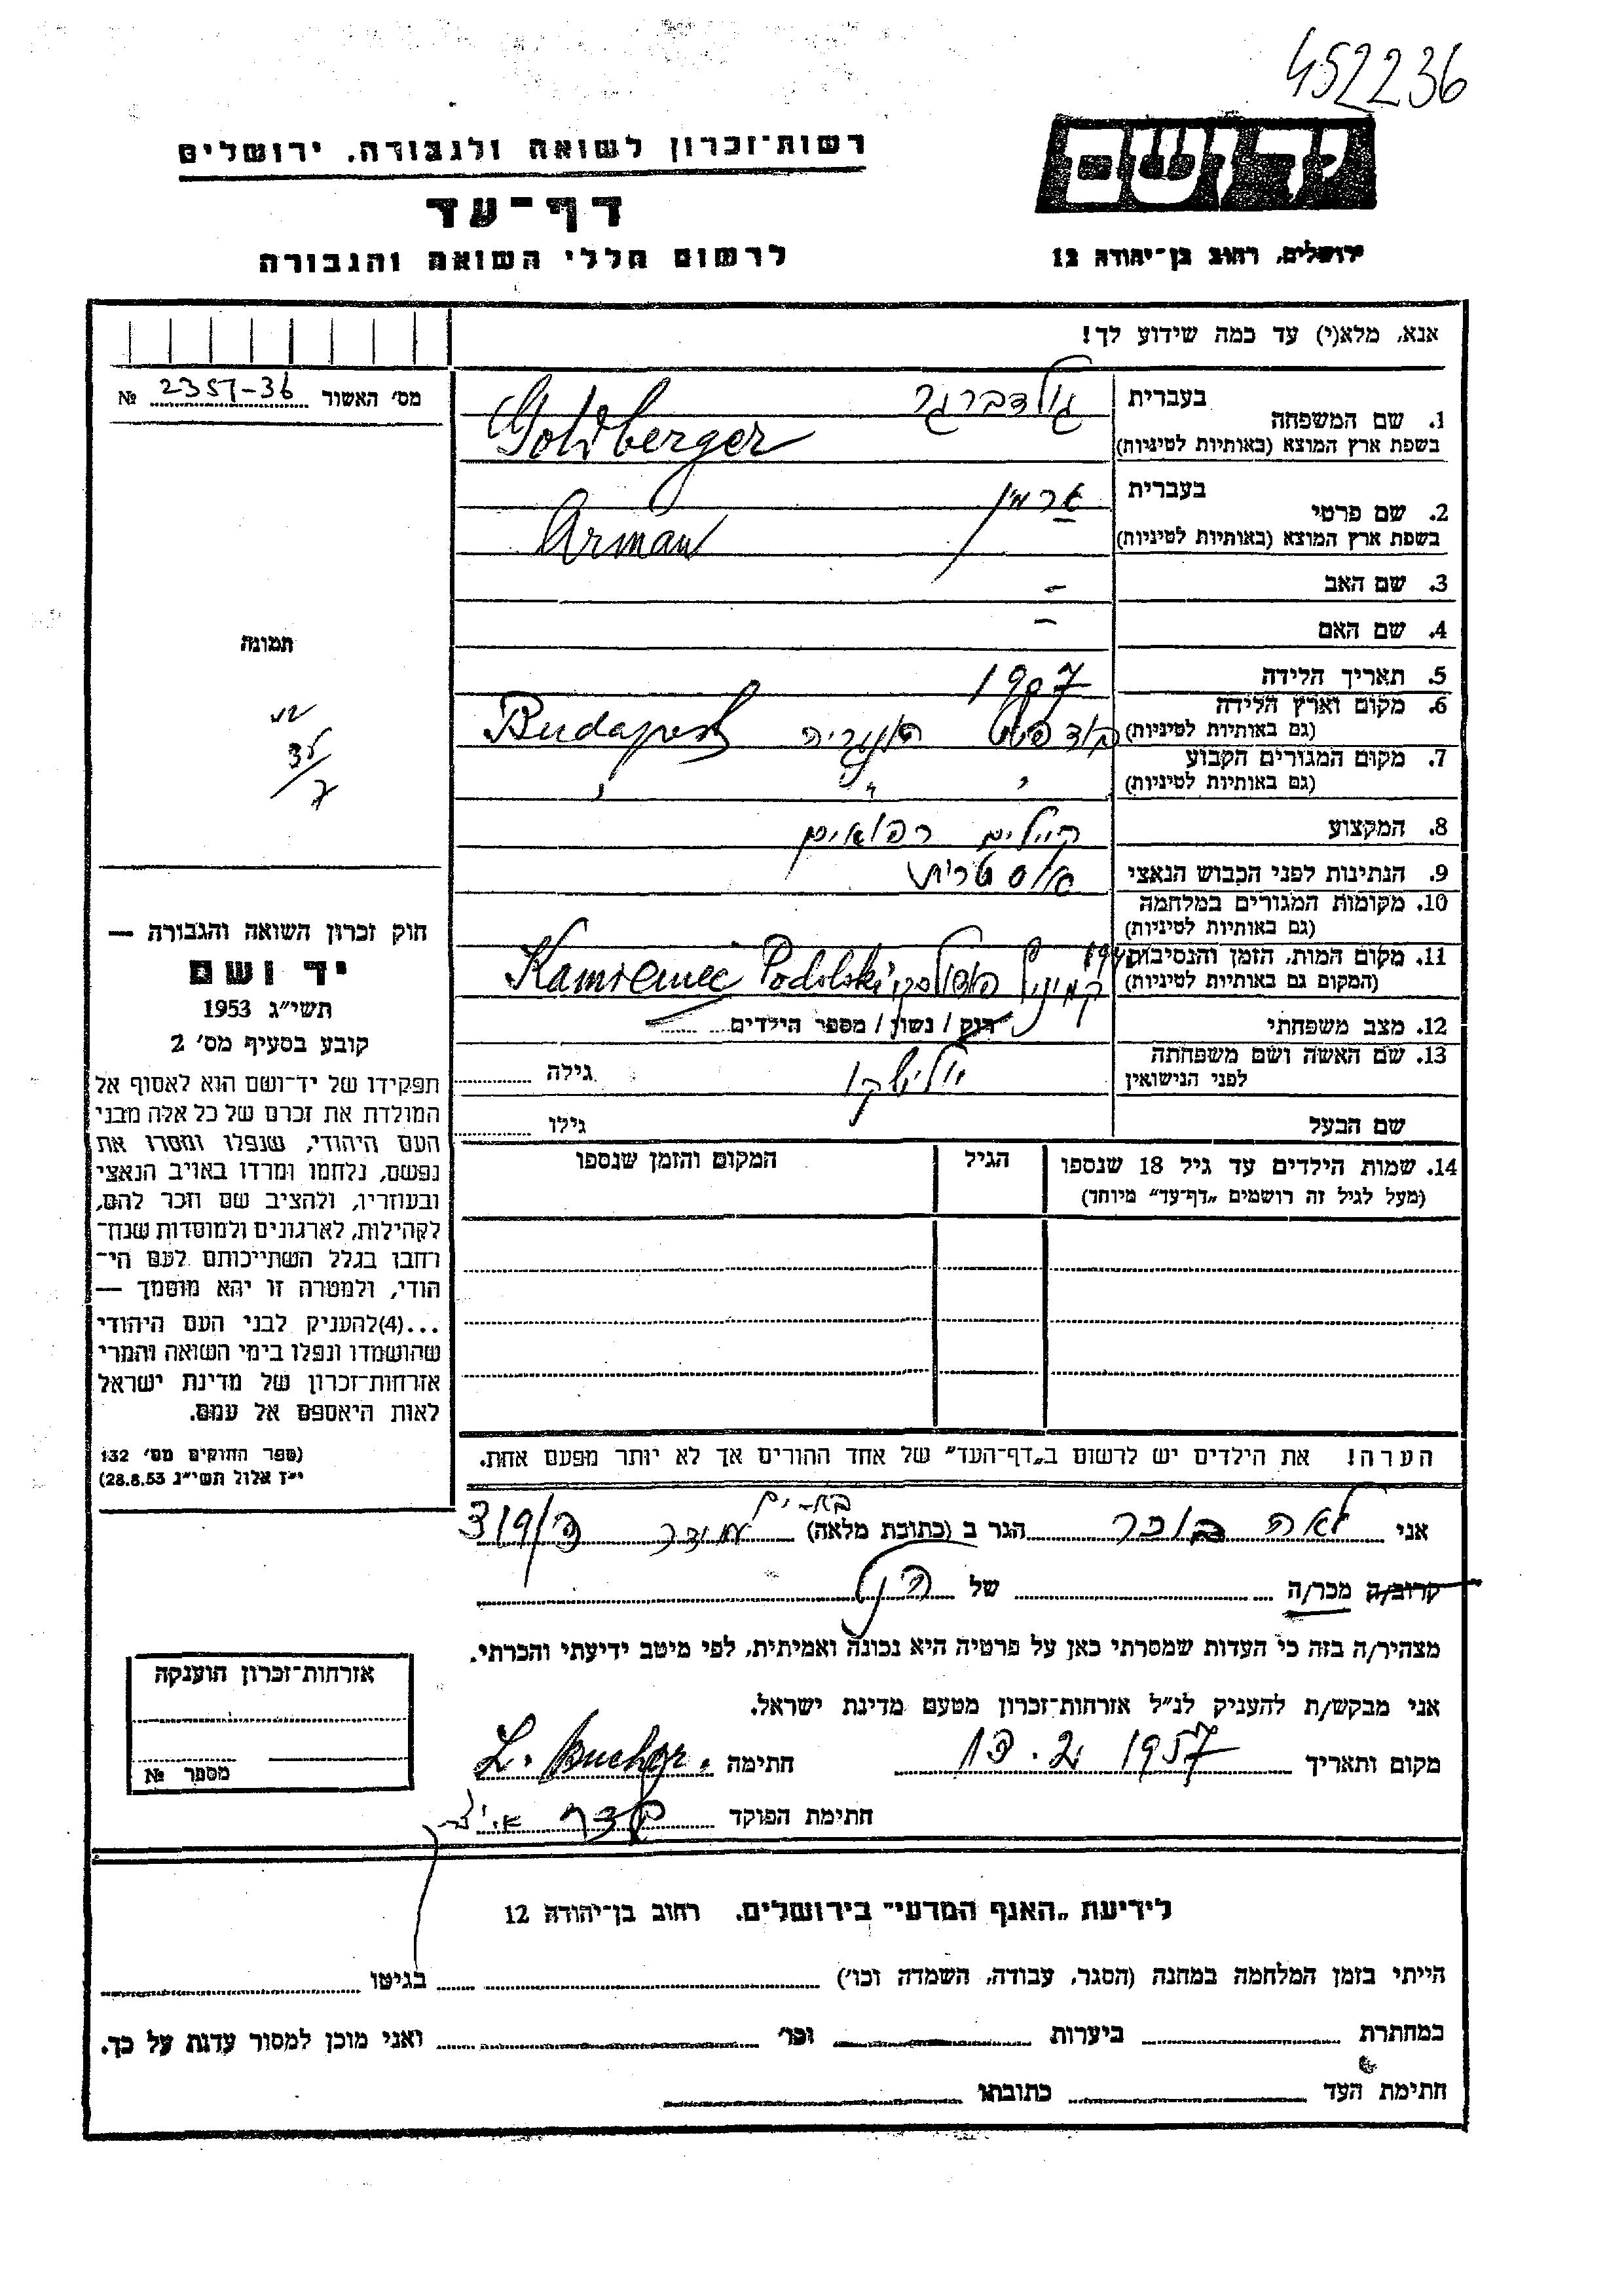 452236
יד ושם
רשות־זכרון לשואה ולגבורה, ירושלים
דף־עד
לרשום חללי השואה והגבורה
ירושלים, רחוב בן־יהודה 12
אנא, מלא(י) עד כמה שידוע לך!
מס' האשור 2351-36 №
1. שם המשפחה
בעברית גולדברגר
בשפת ארץ המוצא (באותיות לטיניות) Goldberger
2. שם פרטי
בעברית ארמין
בשפת ארץ המוצא (באותיות לטיניות) Arman
3. שם האב –
4. שם האם –
תמונה
5. תאריך הלידה 1907
6. מקום וארץ הלידה
(גם באותיות לטיניות) בודפשט הונגריה Budapest
7. מקום המגורים הקבוע
(גם באותיות לטיניות) " " "
8. המקצוע כיילים רפואיים
9. הנתינות לפני הכבוש הנאצי אוסטרית
10. מקומות המגורים במלחמה
(גם באותיות לטיניות)
11. מקום המות, הזמן והנסיבות
(המקום גם באותיות לטיניות) קמיניץ פודולסקי Kamieniec Podolski
12. מצב משפחתי רוק / נשוי / מספר הילדים
13. שם האשה ושם משפחתה
לפני הנישואין יולישקו גילה
שם הבעל גילו
14. שמות הילדים עד גיל 18 שנספו
(מעל לגיל זה רושמים „דף־עד" מיוחד)
הגיל
המקום והזמן שנספו
חוק זכרון השואה והגבורה —
יד ושם
תשי״ג 1953
קובע בסעיף מס' 2
תפקידו של יד־ושם הוא לאסוף אל
המולדת את זכרם של כל אלה מבני
העם היהודי, שנפלו ומסרו את
נפשם, נלחמו ומרדו באויב הנאצי
ובעוזריו, ולהציב שם וזכר להם,
לקהילות, לארגונים ולמוסדות שנח־
רבו בגלל השתייכותם לעם הי־
הודי, ולמטרה זו יהא מוסמך —
...(4) להעניק לבני העם היהודי
שהושמדו ונפלו בימי השואה והמרי
אזרחות־זכרון של מדינת ישראל
לאות היאספם אל עמם.
(ספר החוקים מס' 132
י״ז אלול תשי״ג 28.8.53)
הערה! את הילדים יש לרשום ב„דף־העד" של אחד ההורים אך לא יותר מפעם אחת.
אני לאה בוכר הגר ב (כתובת מלאה) בת-ים עמידר 319/3
קרוב/ה מכר/ה של הנ"ל
מצהיר/ה בזה כי העדות שמסרתי כאן על פרטיה היא נכונה ואמיתית, לפי מיטב ידיעתי והכרתי.
אני מבקש/ת להעניק לנ״ל אזרחות־זכרון מטעם מדינת ישראל.
מקום ותאריך 13.2.1957 חתימה L. Bucher.
חתימת הפוקד
אזרחות־זכרון הוענקה
מספר №
לידיעת „האגף המדעי" בירושלים, רחוב בן־יהודה 12
הייתי בזמן המלחמה במחנה (הסגר, עבודה, השמדה וכו') בגיטו
במחתרת ביערות וכו' ואני מוכן למסור עדות על כך.
חתימת העד כתובתו